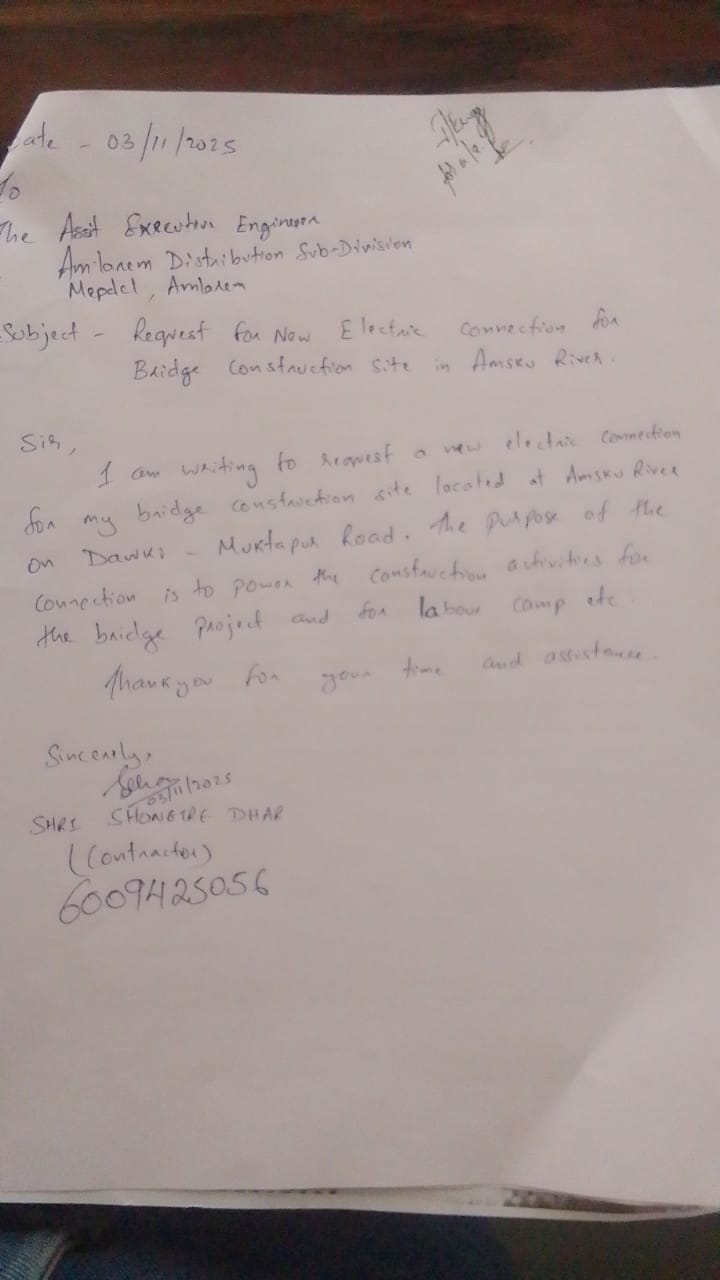 Date - 03/11/2025
To
The Assit Execution Engineer
Amlarem Distribution Sub-Division
Mepdcl, Amlarem
Subject - Request for New Electric connection for
Bridge construction site in Amsku River.
Sir,
I am writing to request a new electric connection
for my bridge construction site located at Amsku River
on Dawki - Muktapur Road. The purpose of the
connection is to power the construction activities for
the bridge project and for labour camp etc.
Thankyou for your time and assistance.
Sincerely,
03/11/2025
SHRI DHAR
(Contractor)
6009425056